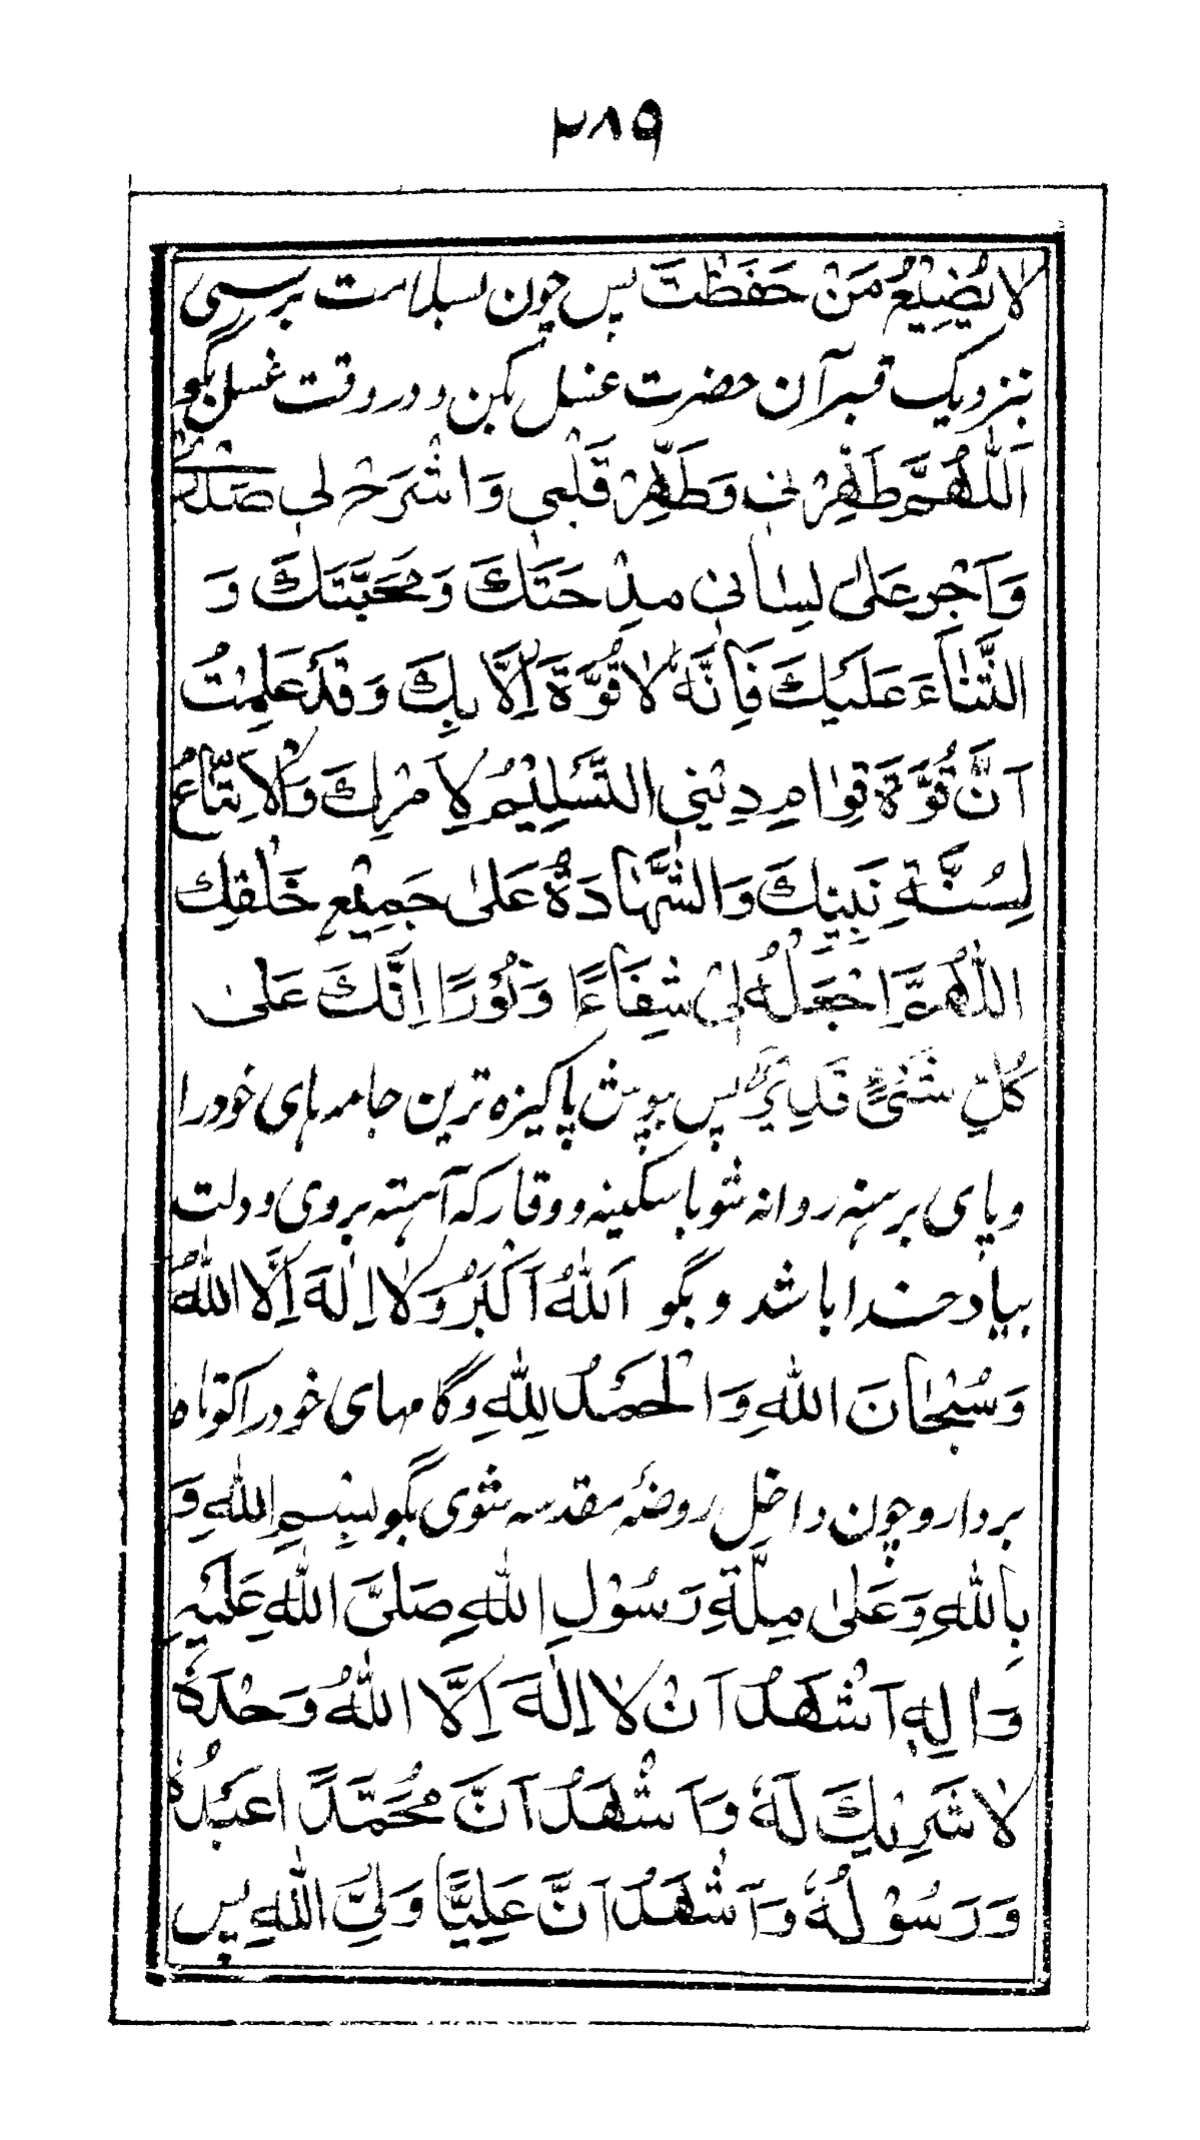 ۲۸۹
لَا يُضِيْعُ مَنْ حَفَظْتَ پس چون بسلامت برسی
بنزدیک قبر آن حضرت غسل بکن و در وقت غسل بگو
اَللّٰهُمَّ طَهِّرْنِىْ وَطَهِّرْ قَلْبِى وَاشْرَحْ لِى صَدْرِىْ
وَاَجْرِ عَلٰى لِسَانِىْ مِدْحَتَكَ وَمَحَبَّتَكَ وَ
الثَّنَاءَ عَلَيْكَ فَاِنَّهُ لَا قُوَّةَ اِلَّا بِكَ وَقَدْ عَلِمْتُ
اَنَّ قُوَّةَ قِوَامِ دِيْنِى التَّسْلِيْمُ لِاَمْرِكَ وَالْاِتِّبَاعُ
لِسُنَّةِ نَبِيِّكَ وَالشَّهَادَةُ عَلٰى جَمِيْعِ خَلْقِكَ
اللّٰهُمَّ اجْعَلْهُ لِىْ شِفَاءً وَنُوْرًا اِنَّكَ عَلٰى
كُلِّ شَىْءٍ قَدِيْرٌ پس بپوش پاکیزه ترین جامه‌های خود را
و پای برهنه روانه شو با سکینه و وقار که آهسته بروی و دلت
بیاد خدا باشد و بگو اَللّٰهُ اَكْبَرُ وَلَا اِلٰهَ اِلَّا اللّٰهُ
وَسُبْحَانَ اللّٰهِ وَالْحَمْدُ لِلّٰهِ و گامهای خود را کوتاه
بردار و چون داخل روضهٔ مقدسه شوی بگو بِسْمِ اللّٰهِ وَ
بِاللّٰهِ وَعَلٰى مِلَّةِ رَسُوْلِ اللّٰهِ صَلَّى اللّٰهُ عَلَيْهِ
وَاٰلِهِ اَشْهَدُ اَنْ لَا اِلٰهَ اِلَّا اللّٰهُ وَحْدَهُ
لَا شَرِيْكَ لَهُ وَاَشْهَدُ اَنَّ مُحَمَّدًا عَبْدُهُ
وَرَسُوْلُهُ وَاَشْهَدُ اَنَّ عَلِيًّا وَلِىُّ اللّٰهِ پس